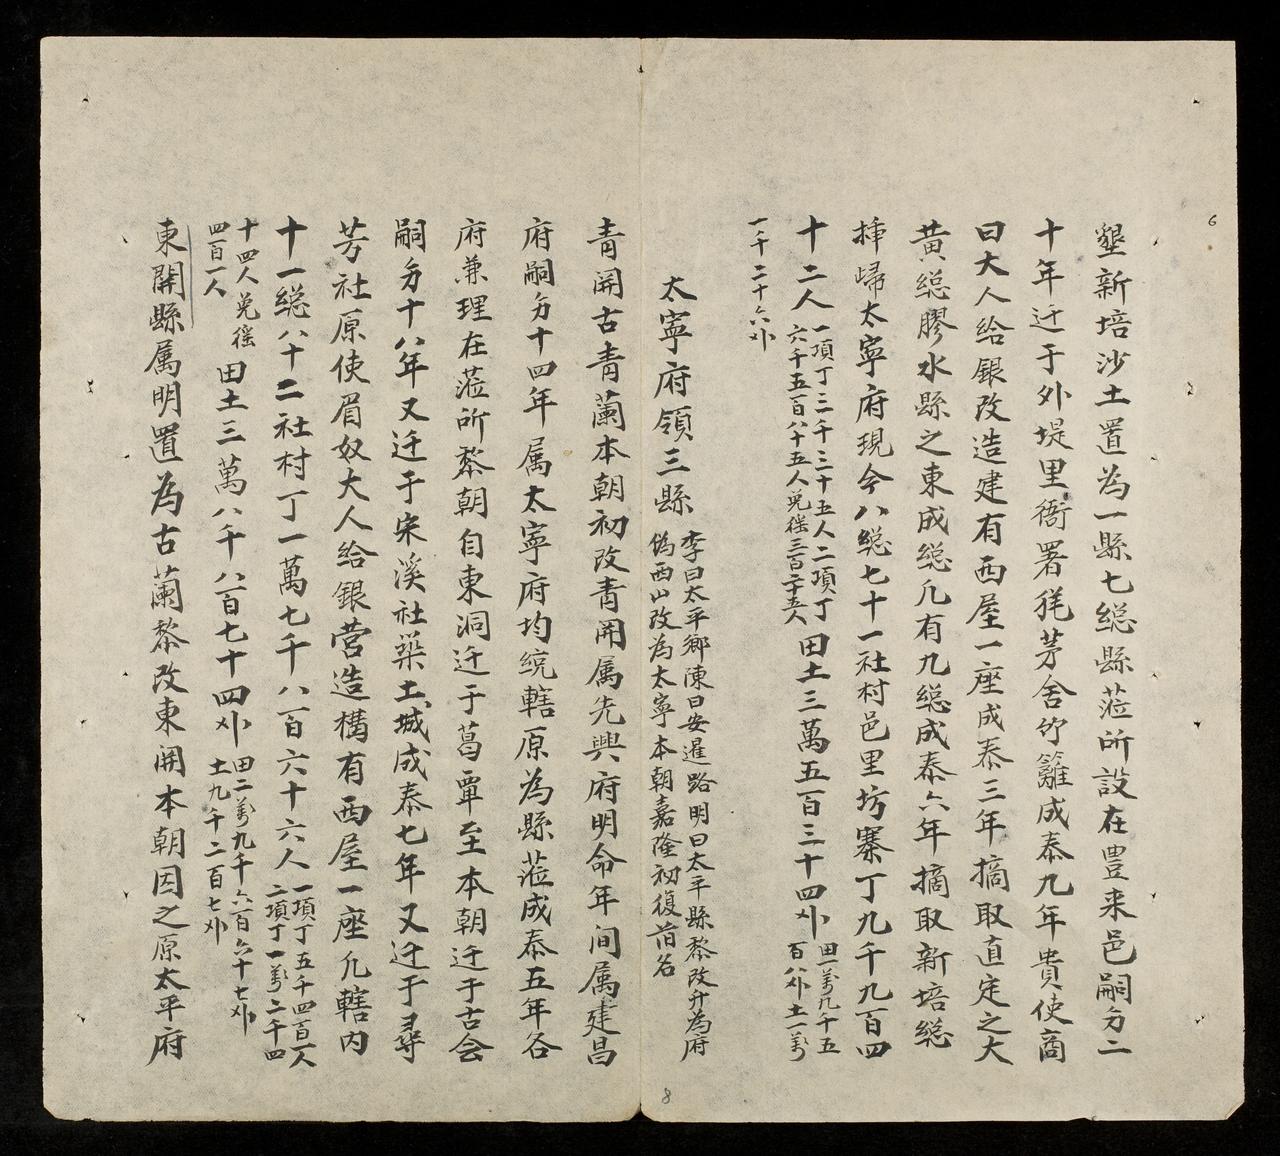 6
墾新培沙土置為一縣七總縣蒞所設在豊来邑嗣分二
十年迁于外堤里衙署毛茅舍竹籬成泰九年貴使商
曰大人给銀改造建有西屋一座成泰三年摘取直定之大
黄總膠水縣之東成總凢有九總成泰六年摘取新培總
揷歸太寧府現今八總七十一社村邑里坊寨丁九千九百四
十二人 一項丁三千三十五人二項丁
六千五百八十五人免徭三百二十五人 田土三萬五百三十四𠦳 田一萬九千五
百八𠦳土一萬
一千二十六𠦳
太寧府領三縣 李曰太平郷陳曰安暹路明曰太平縣黎改升為府
偽西山改為太寧本朝嘉隆初復前名
青関古青蘭本朝初改青関属先興府明命年间属建昌
府嗣分十四年属太寧府均統轄原為縣蒞成泰五年谷
府兼理在蒞所黎朝自東洞迁于葛覃至本朝迁于古会
嗣分十八年又迁于宋溪社築土城成泰七年又迁于尋
芳社原使眉奴大人给銀营造構有西屋一座凢轄内
十一總八十二社村丁一萬七千八百六十六人 一項丁五千四百一人
二項丁一萬二千四
十四人免徭
四百一人 田土三萬八千八百七十四𠦳 田二萬九千六百六十七𠦳
土九千二百七𠦳
東関縣属明置為古蘭黎改東関本朝因之原太平府
8